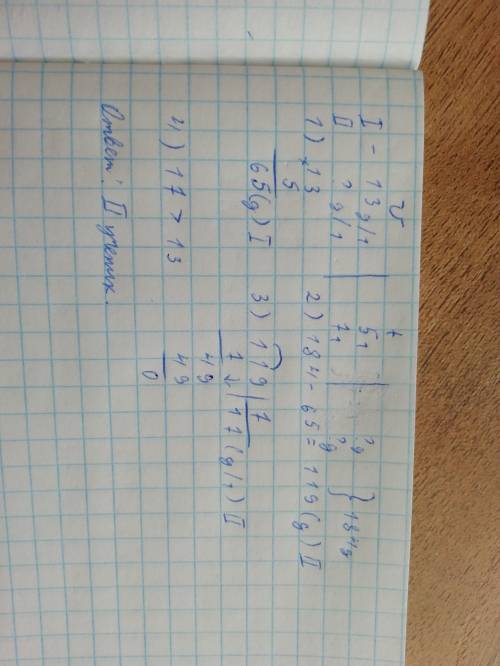 v t
I - 13 д/ч 5ч ? д } 184д
II ? д/ч 7ч ? д
1) ×13
5
65(д) I
2) 184 - 65 = 119(д) II
3) 119 | 7
7 | 17 (д/ч) II
49
49
0
4) 17 > 13
Ответ: II ученик.